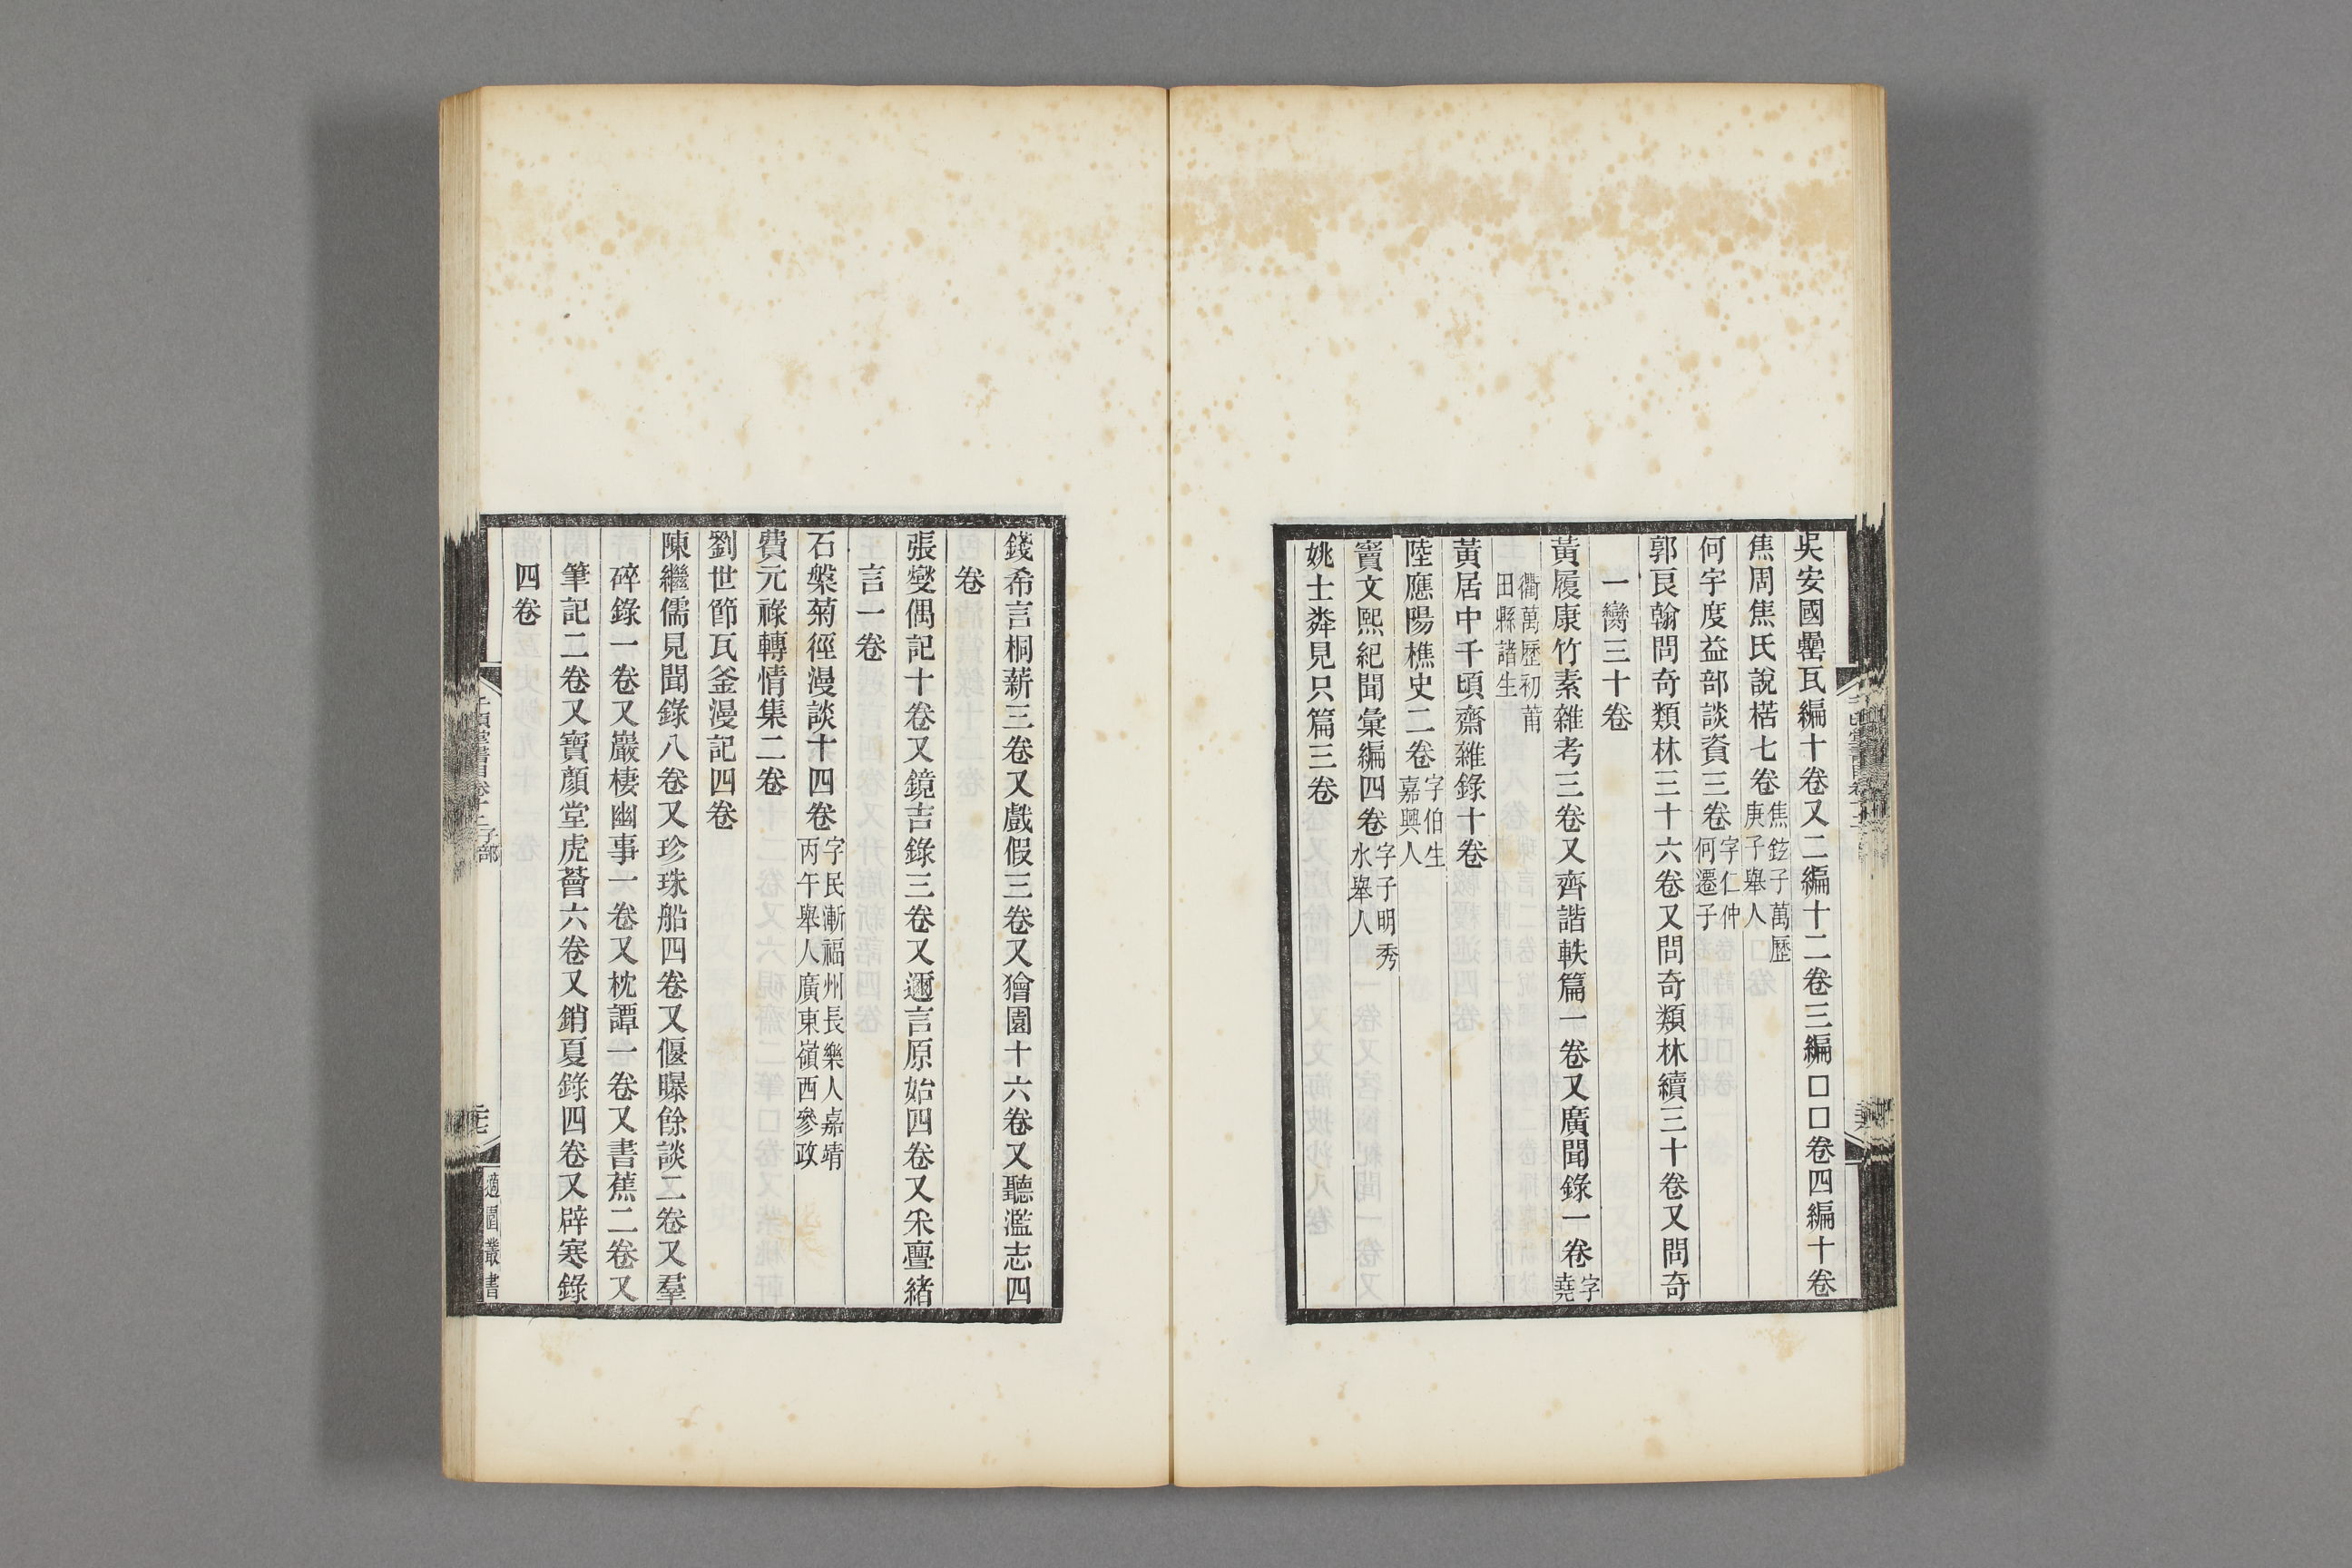 吳安國纍瓦編十卷又二編十二卷三編□□卷四編十卷
焦周焦氏說楛七卷焦鉉子萬歷庚子舉人
何宇度益部談資三卷字仁仲何遷子
郭良翰問奇類林三十六卷又問奇類林續三十卷又問奇
一臠三十卷
黃履康竹素雜考三卷又齊諧軼篇一卷又廣聞錄一卷字堯
衢萬歷初莆田縣諸生
黃居中千頃齋雜錄十卷
陸應陽樵史二卷字伯生嘉興人
竇文熙紀聞彙編四卷字子明秀水舉人
姚士粦見只篇三卷
錢希言桐薪三卷又戲假三卷又獪園十六卷又聽濫志四
卷
張燮偶記十卷又鏡吉錄三卷又邇言原始四卷又釆亹緒
言一卷
石槃菊徑漫談十四卷字民漸福州長樂人嘉靖丙午舉人廣東嶺西參政
費元祿轉情集二卷
劉世節瓦釜漫記四卷
陳繼儒見聞錄八卷又珍珠船四卷又偃曝餘談二卷又羣
碎錄一卷又巖棲幽事一卷又枕譚一卷又書蕉二卷又
筆記二卷又寶顏堂虎薈六卷又銷夏錄四卷又辟寒錄
四卷
千頃堂書目卷十二子部
適園叢書